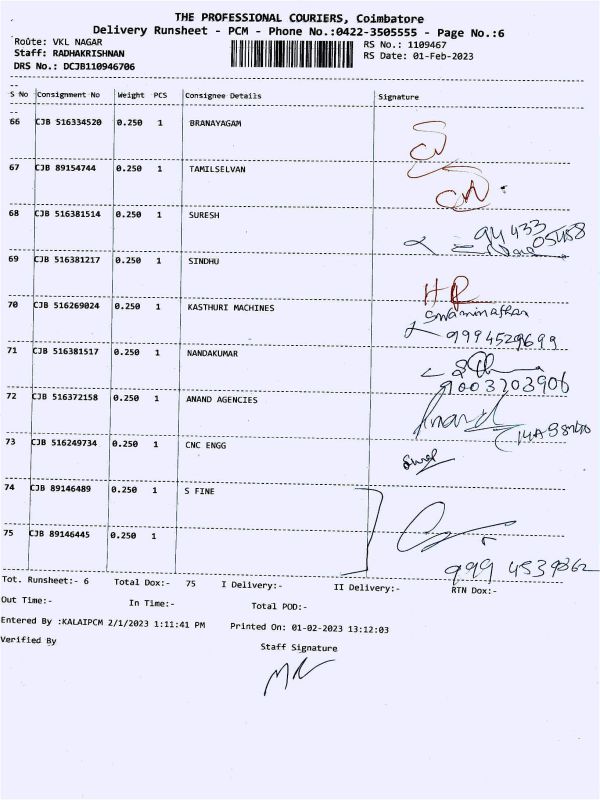 THE PROFESSIONAL COURIERS, Coimbatore
Delivery Runsheet - PCM - Phone No.:0422-3505555 - Page No.:6
Route: VKL NAGAR
RS No.: 1109467
Staff: RADHAKRISHNAN
RS Date: 01-Feb-2023
DRS No.: DCJB110946706
S No Consignment No Weight PCS Consignee Details Signature
66 CJB 516334520 0.250 1 BRANAYAGAM
67 CJB 89154744 0.250 1 TAMILSELVAN
68 CJB 516381514 0.250 1 SURESH
94433
05458
69 CJB 516381217 0.250 1 SINDHU
HR
70 CJB 516269024 0.250 1 KASTHURI MACHINES
Swaminathan
9994529699
71 CJB 516381517 0.250 1 NANDAKUMAR
9003203906
72 CJB 516372158 0.250 1 ANAND AGENCIES
Anand
73 CJB 516249734 0.250 1 CNC ENGG
74 CJB 89146489 0.250 1 S FINE
75 CJB 89146445 0.250 1
999 4539862
Tot. Runsheet:- 6 Total Dox:- 75 I Delivery:- II Delivery:- RTN Dox:-
Out Time:- In Time:- Total POD:-
Entered By :KALAIPCM 2/1/2023 1:11:41 PM Printed On: 01-02-2023 13:12:03
Verified By
Staff Signature